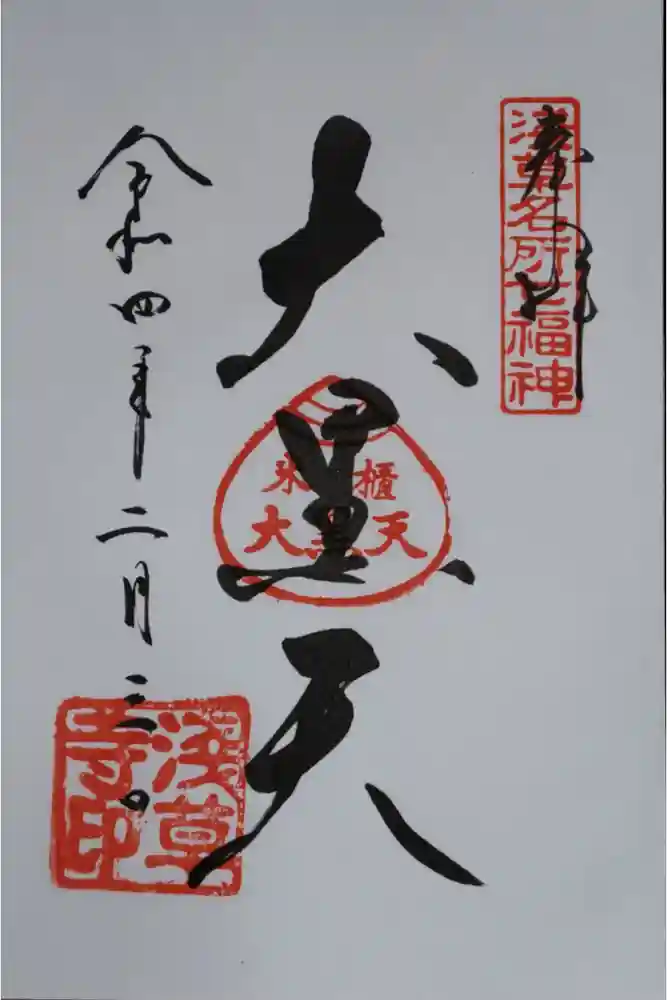 奉拝
浅草名所七福神
大黒天
米櫃
大黒天
令和四年二月三日
浅草
寺印